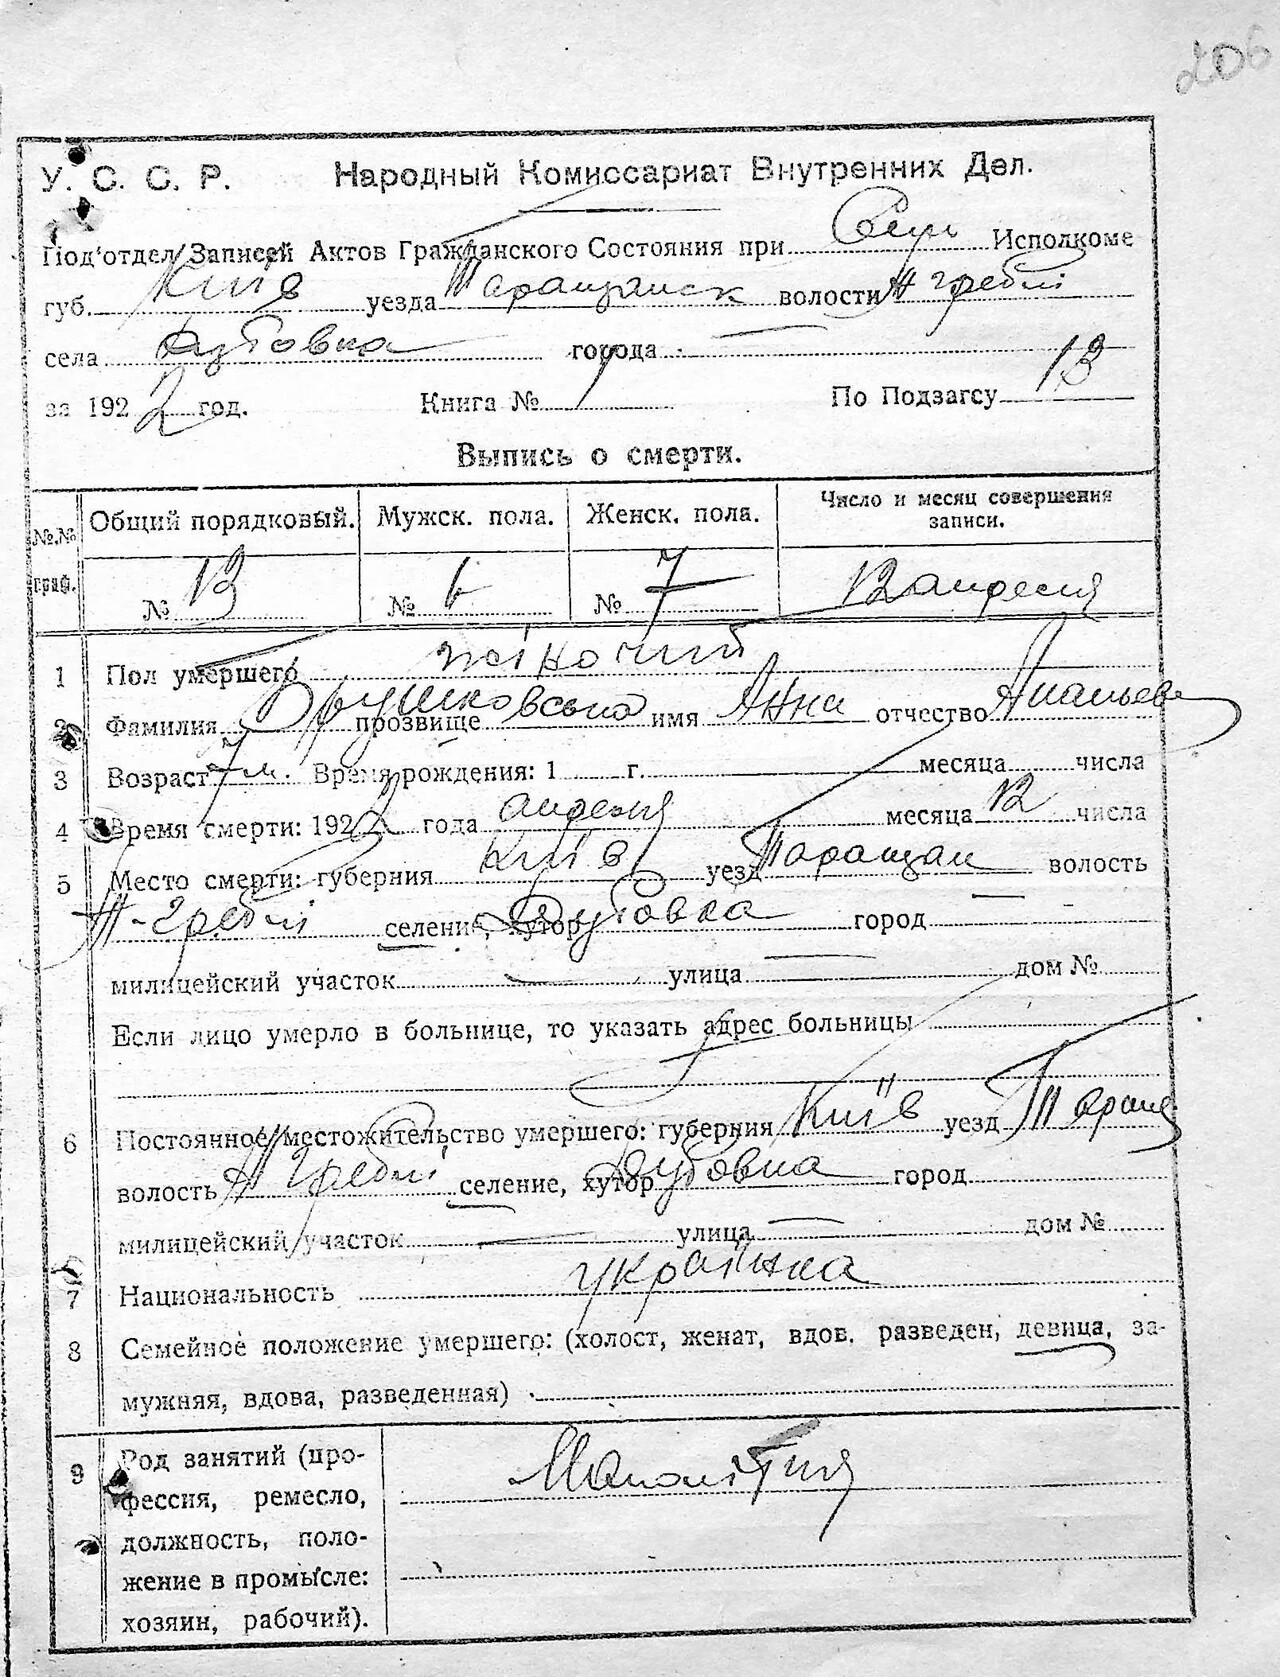 206
У. С. С. Р. Народный Комиссариат Внутренних Дел.
Под'отдел Записей Актов Гражданского Состояния при Исполкоме
губ. Київ уезда Таращанск волости Т Греблі
села Дубовка города —
за 1922 год. Книга № 1 По Подзагсу 13
Выпись о смерти.
№№ граф. Общий порядковый. Мужск. пола. Женск. пола. Число и месяц совершения записи.
№ 13 № 6 № 7 12 апреля
1 Пол умершего жіночий
2 Фамилия прозвище Трушковська имя Анна отчество Ананьева
3 Возраст 7 м. Время рождения: 1 г. месяца числа
4 Время смерти: 1922 года апреля месяца 12 числа
5 Место смерти: губерния Київ уезд Таращан волость
Т-Греблі селение, хутор Дубовка город —
милицейский участок — улица — дом №
Если лицо умерло в больнице, то указать адрес больницы
6 Постоянное местожительство умершего: губерния Київ уезд Таращ
волость Т Греблі селение, хутор Дубовка город
милицейский участок — улица — дом №
7 Национальность українка
8 Семейное положение умершего: (холост, женат, вдов. разведен, девица, за-
мужняя, вдова, разведенная)
9 Род занятий (про-
фессия, ремесло,
должность, поло-
жение в промысле:
хозяин, рабочий).
Малолітня